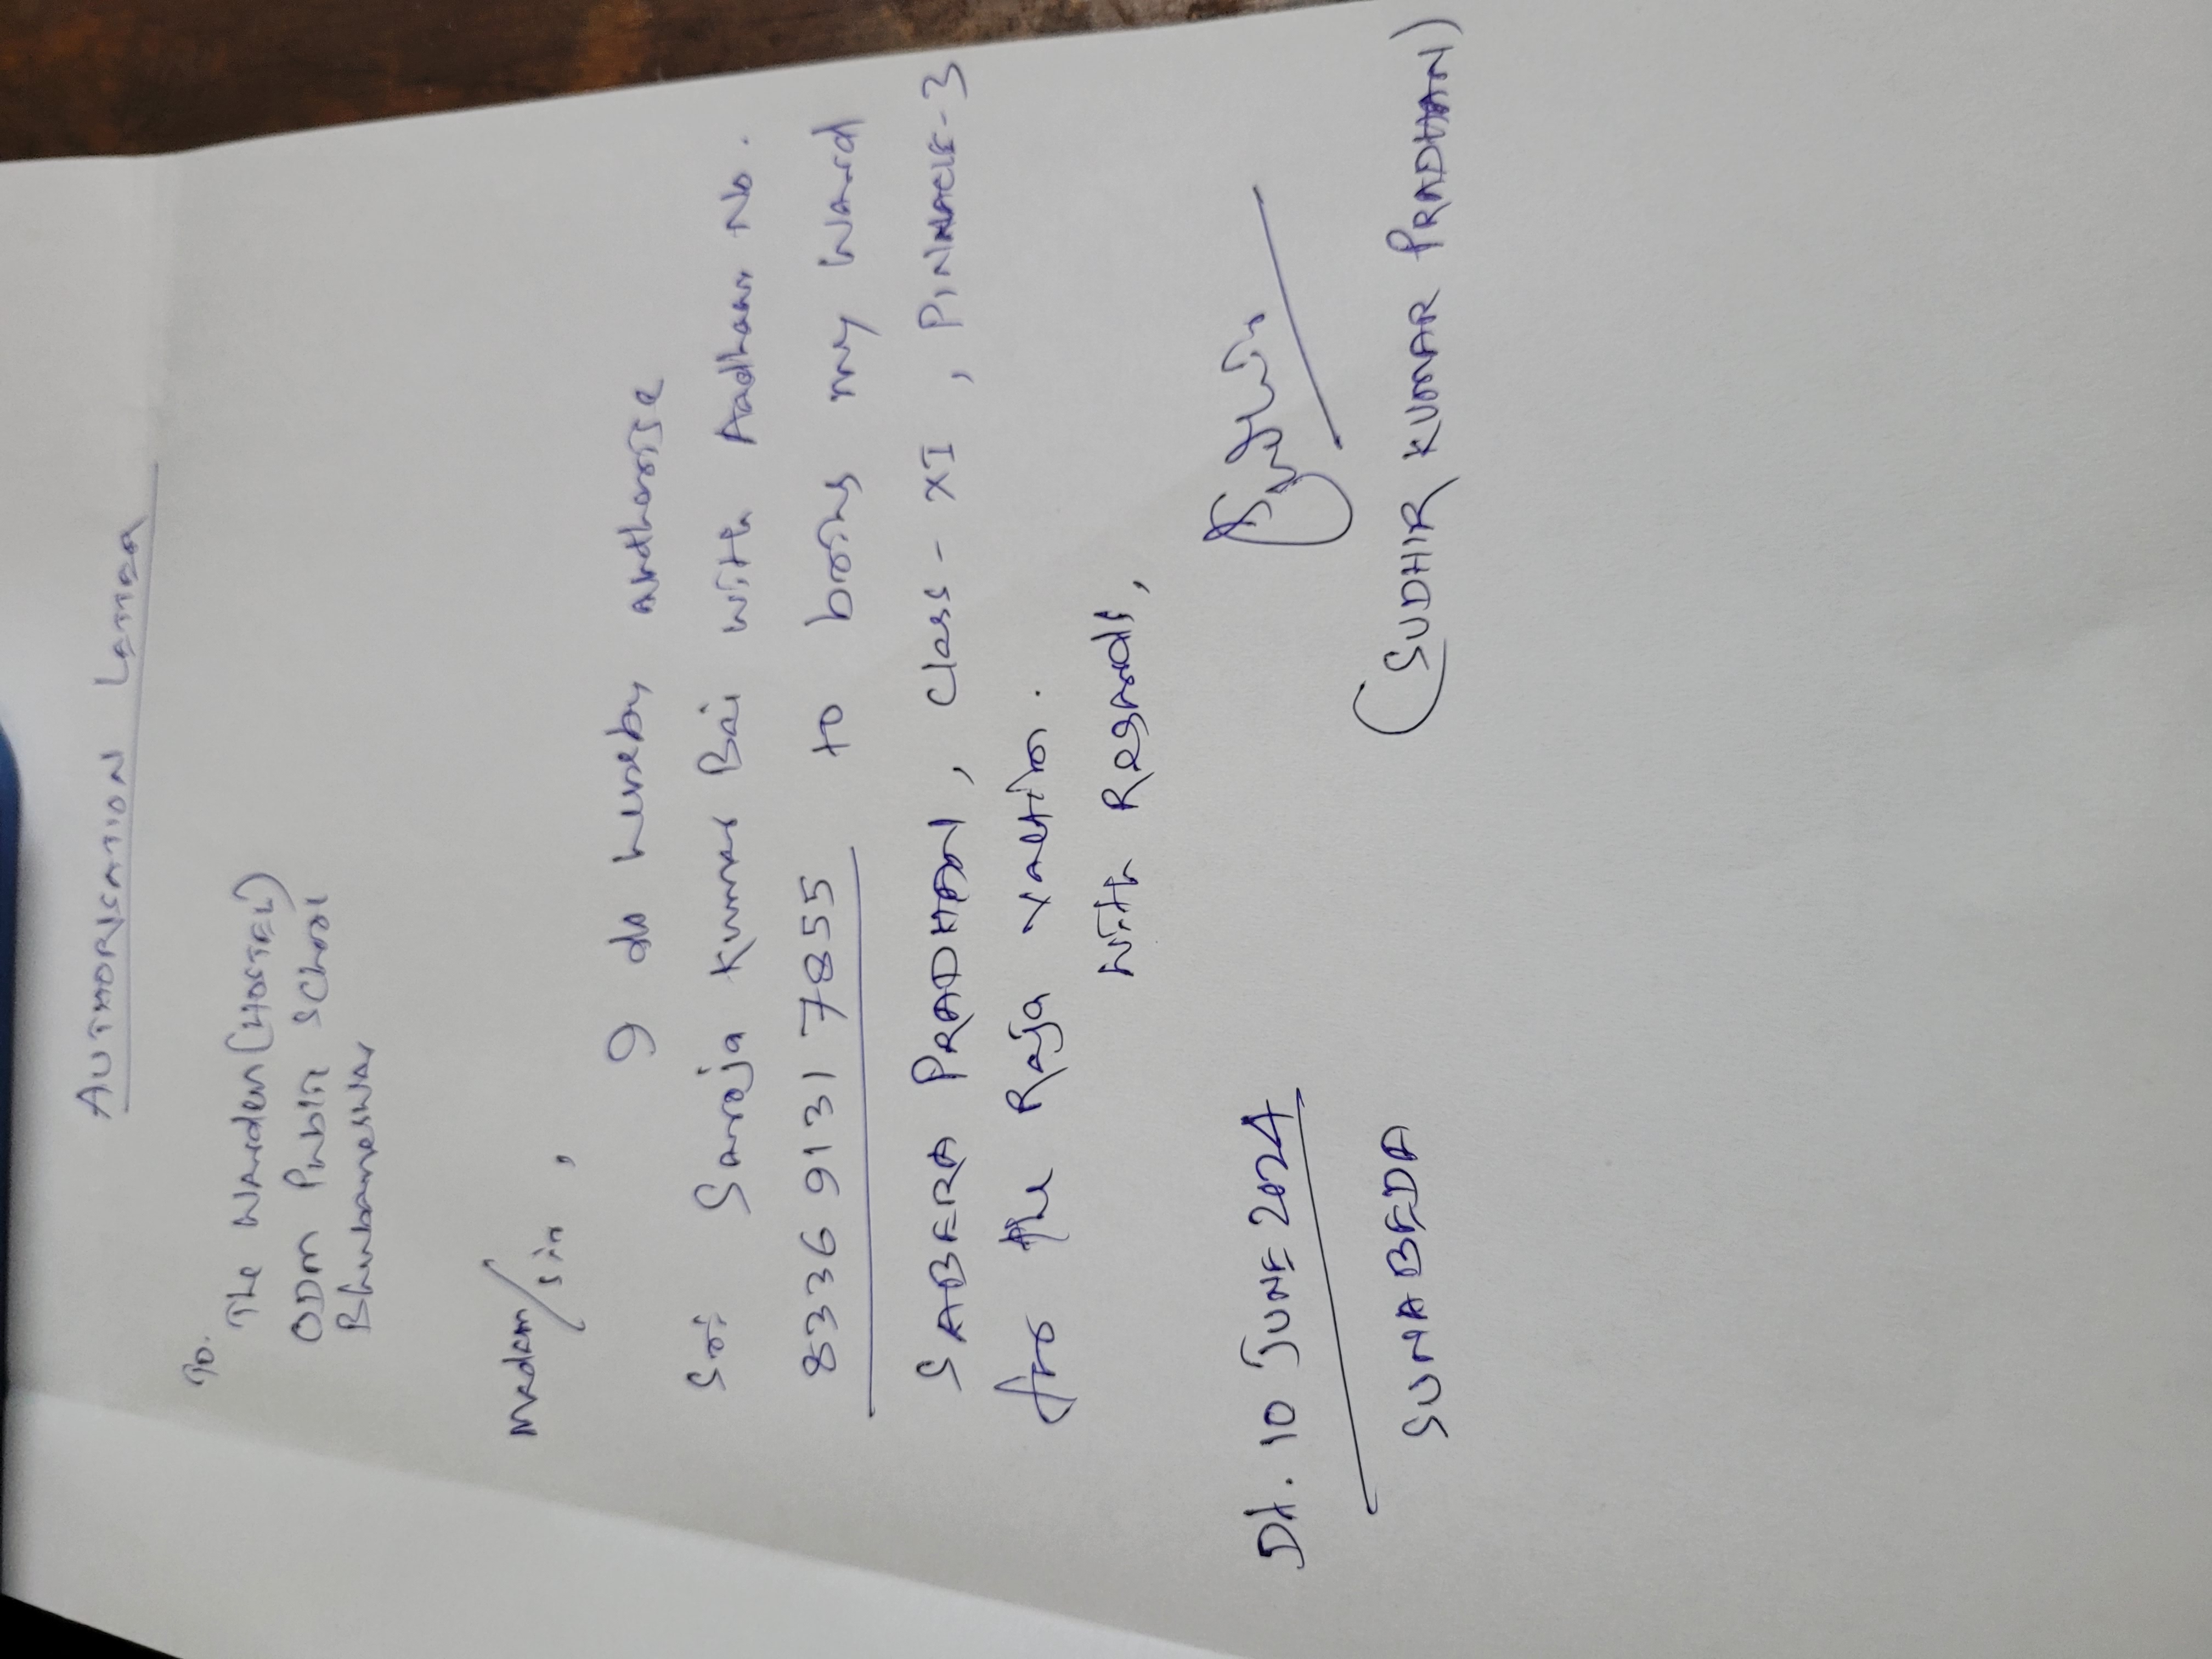 AUTHORISATION LETTER
To.
The Warden (HOSTEL)
ODM Public School
Bhubaneswar
Madam/Sir,
I do hereby authorise
Sri Saroja Kumar Bai with Aadhaar No.
8336 9131 7855 to bring my ward
SABERA PRADHAN, Class - XI, PINNACLE-3
for the Raja
With Regards,
Dt. 10 JUNE 2024
SUNABEDA
(SUDHIR KUMAR PRADHAN)